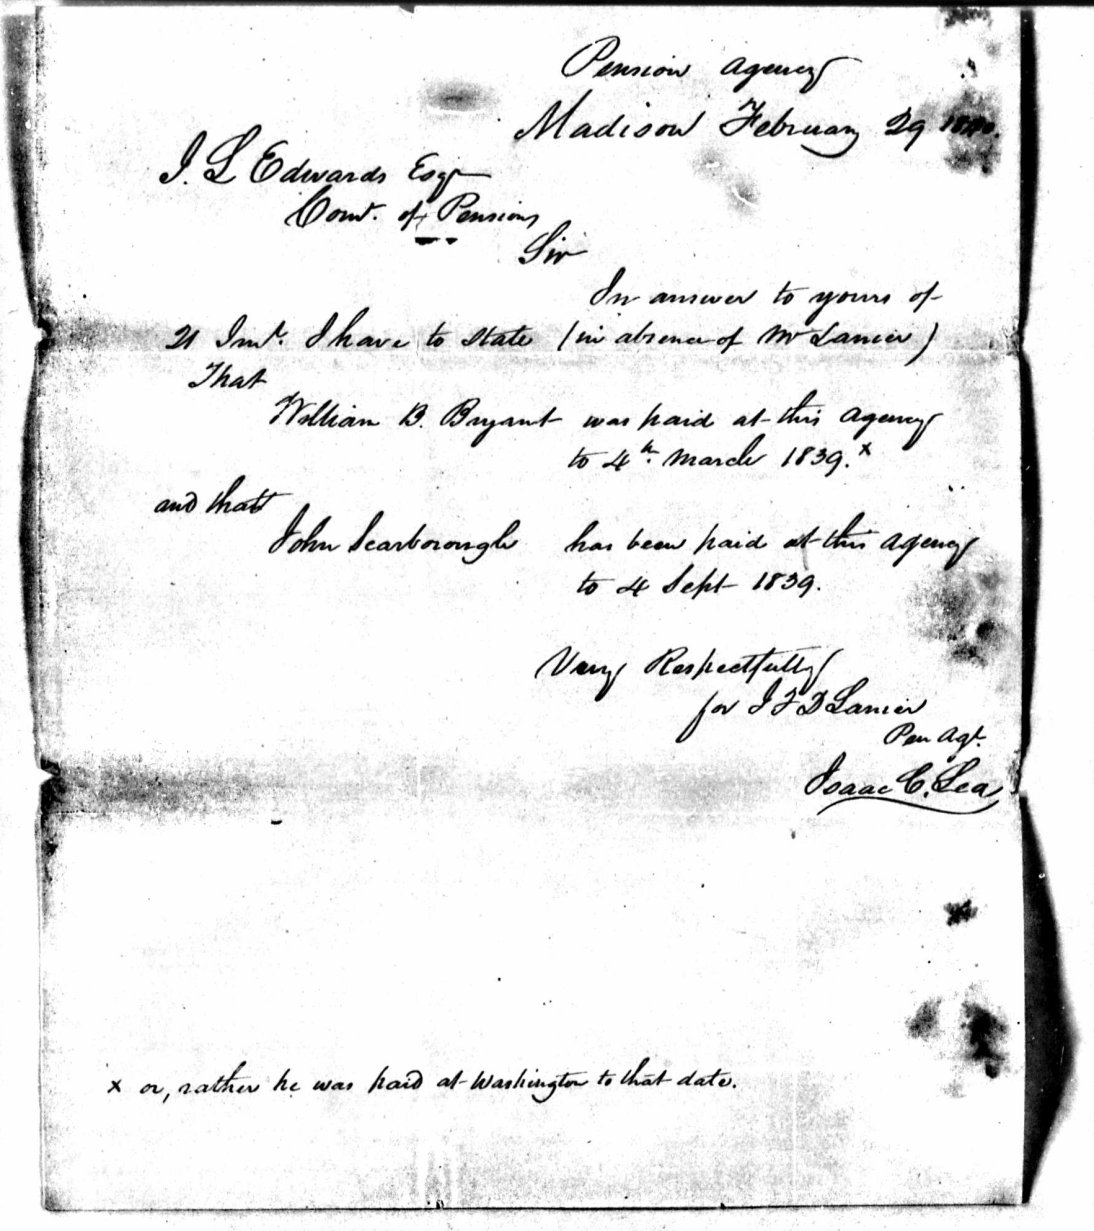 Pension Agency
Madison February 29 1840.
J. L Edwards Esqr
Comr. of Pensions
Sir
In answer to yours of
21 Inst. I have to state (in absence of Mr Lanier)
That
William B. Bryant was paid at this Agency
to 4th. March 1839.x
and that
John Scarborough has been paid at this Agency
to 4 Sept 1839.
Very Respectfully
for J F D Lanier
Pen Agt.
Isaac C. Lea
x or, rather he was paid at Washington to that date.